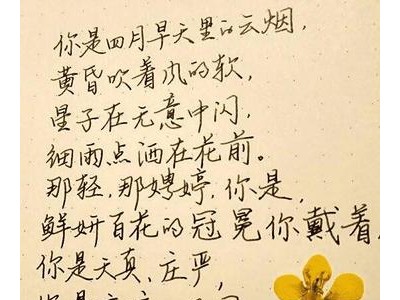 你是四月早天里的云烟，
黄昏吹着风的软，
星子在无意中闪，
细雨点洒在花前。
那轻，那娉婷，你是，
鲜妍百花的冠冕你戴着，
你是天真、庄严，